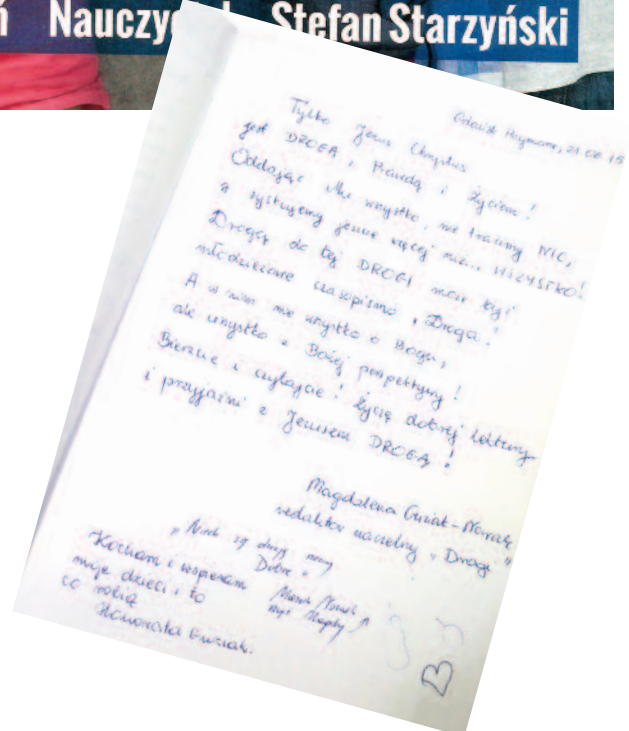 Nauczyciel Stefan Starzyński
Gdańsk Matemblewo, 21.06.15
Tylko Jezus Chrystus
jest DROGĄ, Prawdą i Życiem!
Oddając Mu wszystko, nie tracimy NIC,
a zyskujemy jeszcze więcej niż... WSZYSTKO!
Drogą do tej DROGI może być
młodzieżowe czasopismo „Droga".
A w nim nie wszystko o Bogu,
ale wszystko z Bożej perspektywy!
Bierzcie i czytajcie! Życzę dobrej lektury
i przyjaźni z Jezusem DROGĄ!
Magdalena Guziak-Nowak
redaktor naczelny „Drogi"
„Niech się dzieje
Dobro"
Kocham i wspieram
moje dzieci i to
co robią
Honorata Guziak.
Marek Nowak
mąż Magdy